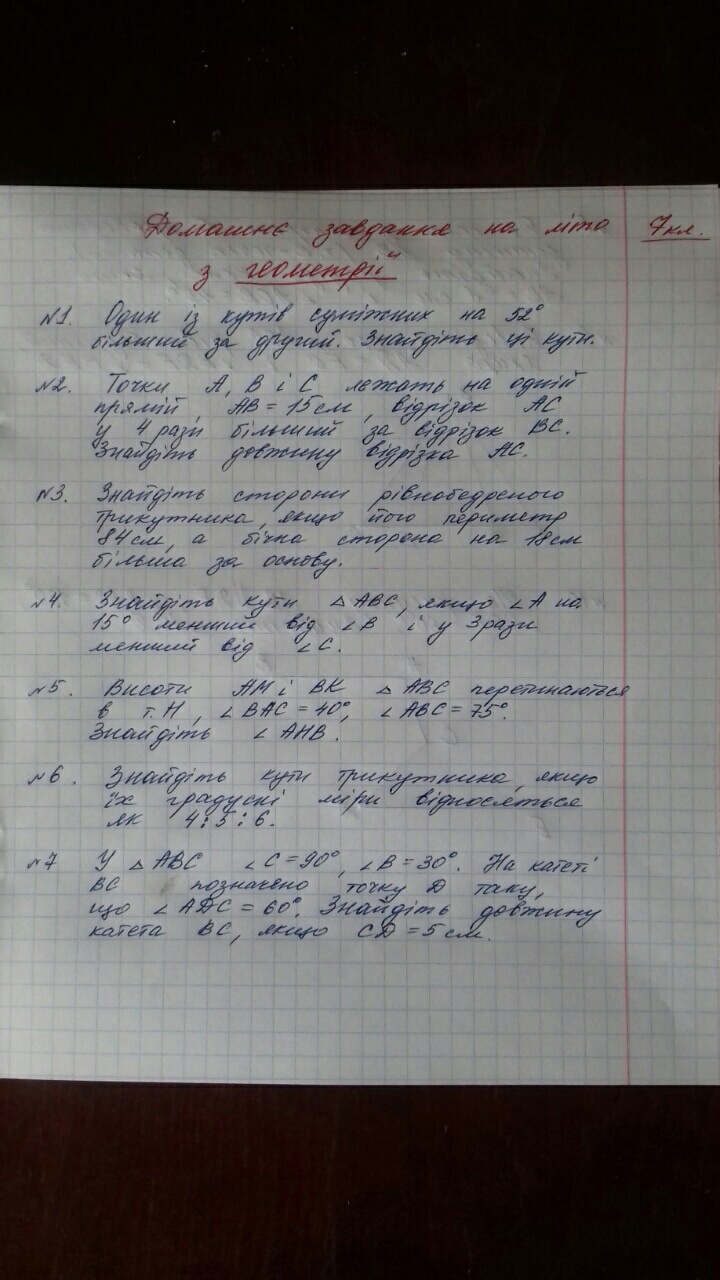 Домашнє завдання на літо 7кл.
з геометрії
№1. Один із кутів суміжних на 52°
більший за другий. Знайдіть ці кути.
№2. Точки А, В і С лежать на одній
прямій, АВ = 15 см, відрізок АС
у 4 рази більший за відрізок ВС.
Знайдіть довжину відрізка АС.
№3. Знайдіть сторони рівнобедреного
трикутника, якщо його периметр
84см, а бічна сторона на 18см
більша за основу.
№4. Знайдіть кути △ АВС, якщо ∠А на
15° менший від ∠В і у 3 рази
менший від ∠С.
№5. Висоти АМ і ВК △ АВС перетинаються
в т. Н, ∠ВАС = 40°, ∠АВС = 75°.
Знайдіть ∠ АНВ.
№6. Знайдіть кути трикутника, якщо
їх градусні міри відносяться
як 4:5:6.
№7 У △ АВС ∠С = 90°, ∠В = 30°. На катеті
ВС позначено точку D таку,
що ∠ADC = 60°. Знайдіть довжину
катета ВС, якщо CD = 5 см.